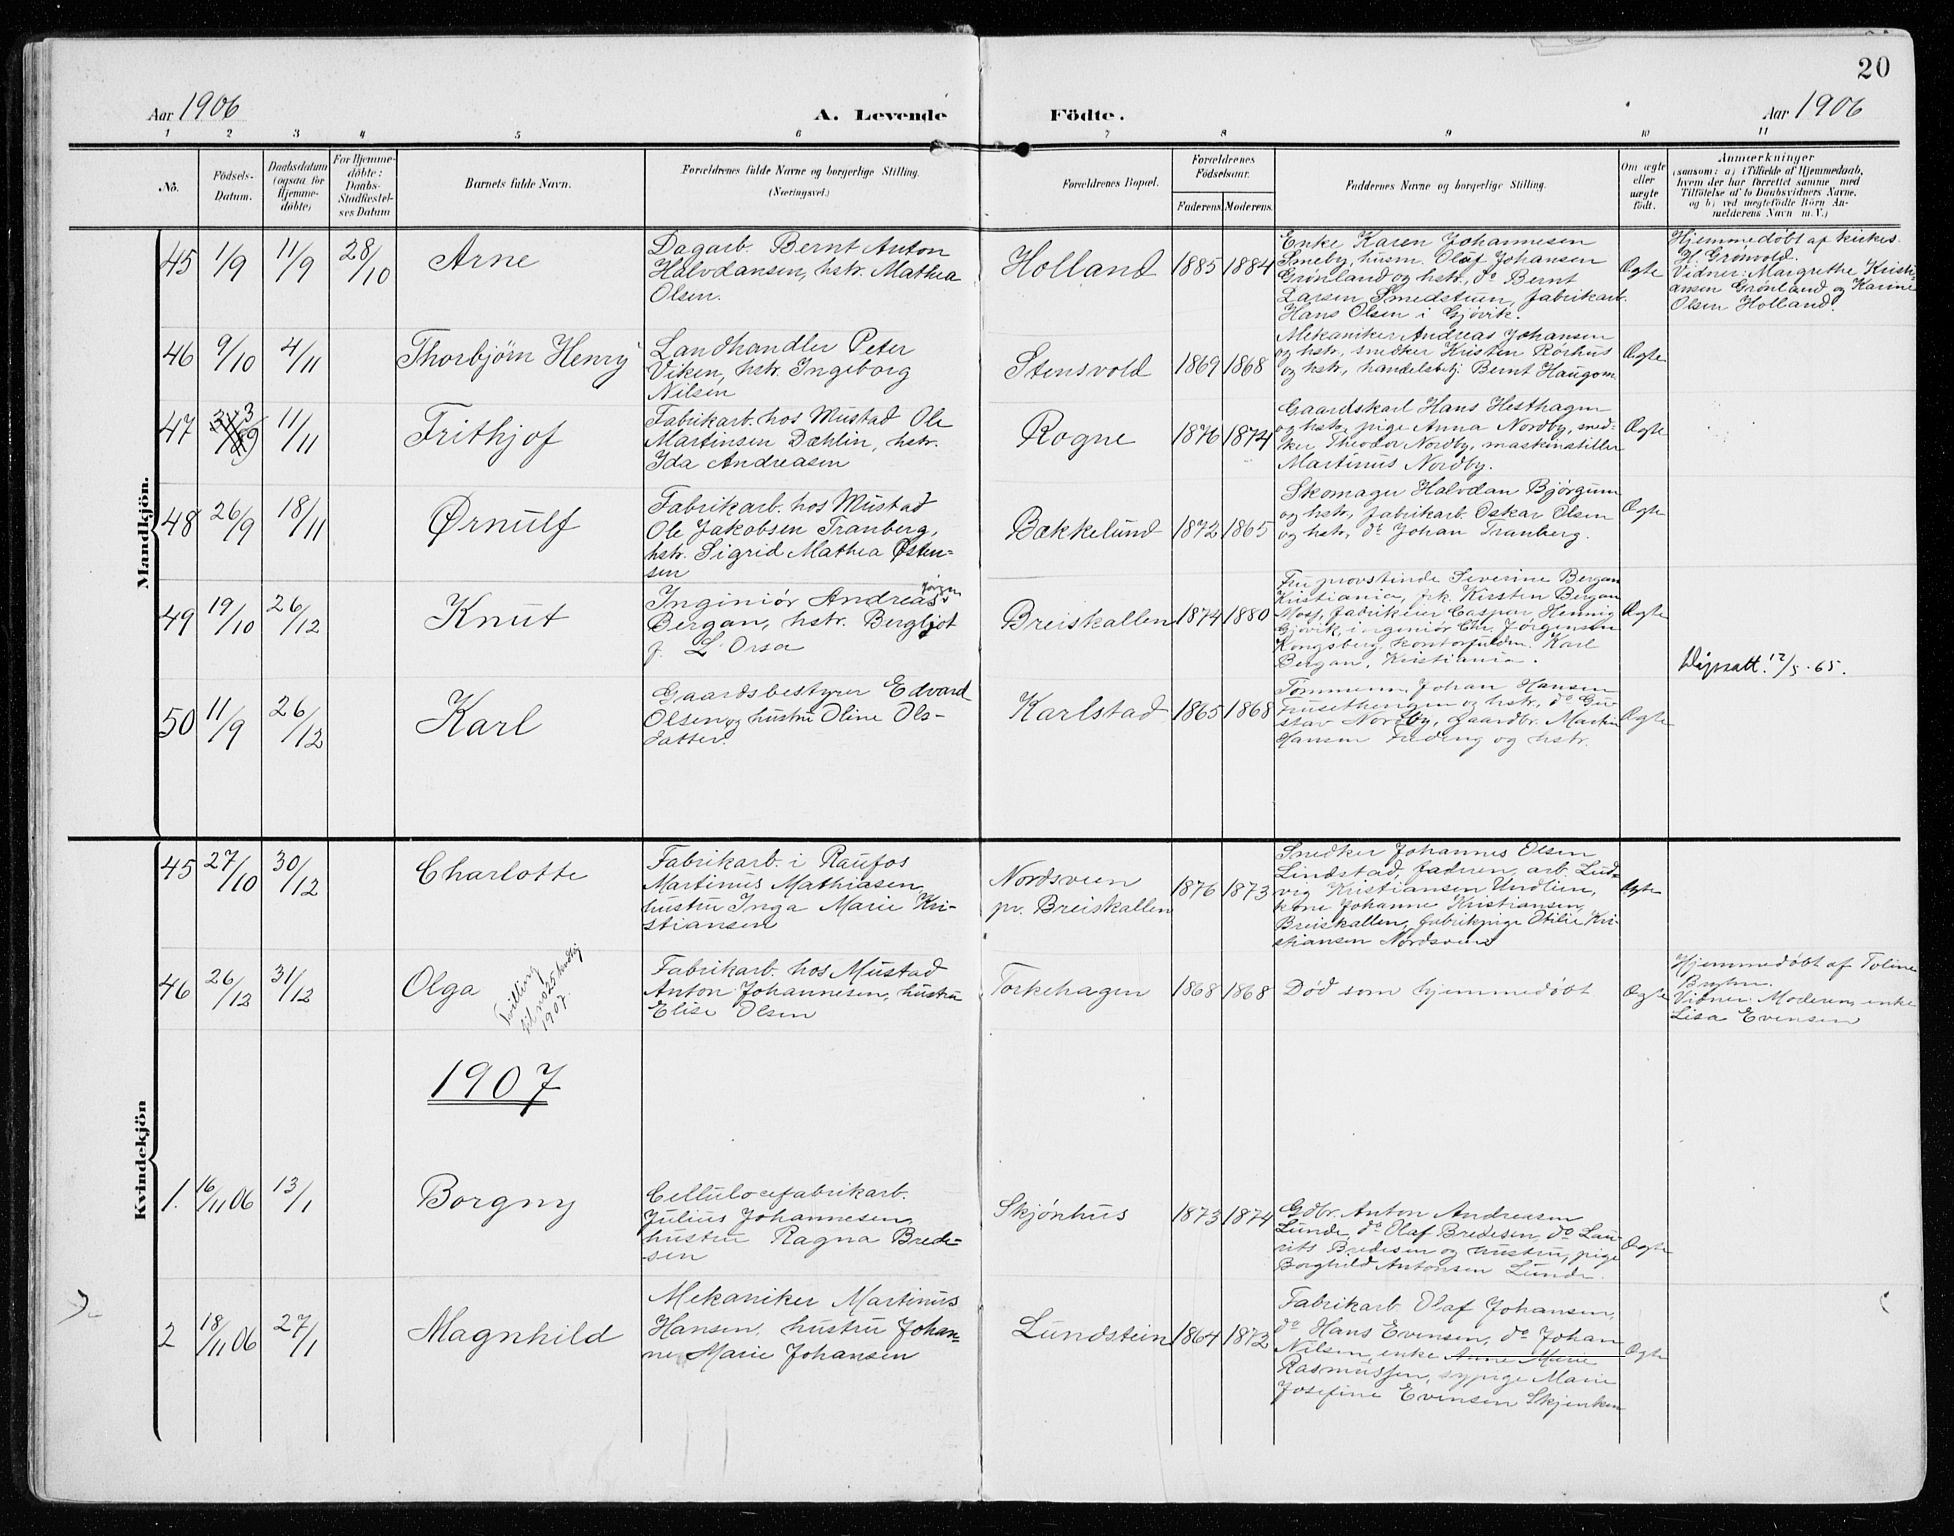 20
Aar 1906
A. Levende Födte.
Aar 1906
1 2 3 4 5 6 7 8 9 10 11
No.
Födsels-
Datum.
Daabsdatum
(ogsaa for
Hjemme-
döbte)
For Hjemme-
döbte:
Daabs-
Stadfæstel-
ses Datum
Barnets fulde Navn.
Forældrenes fulde Navne og borgerlige Stilling.
(Næringsvei.)
Forældrenes Bopæl.
Forældrenes
Födselsaar.
Faderens Moderens.
Faddernes Navne og borgerlige Stilling.
Om ægte
eller
uægte
födt.
Anmærkninger
(saasom: a) i Tilfælde af Hjemmedaab,
hvem der har forrettet samme, med
Tilföielse af to Daabsvidners Navne,
og b) ved uægtefödte Börn An-
melderens Navn m. V.)
Mandkjön.
45 1/9 11/9 28/10 Arne
Dagarb. Bernt Anton
Halvdansen, hstr. Mathea
Olsen.
Holland 1885 1884
Enke Karen Johannesen
Smeby, husm. Olaf Johansen
Grønland og hstr., do Bernt
Larsen Smedstuen, fabrikarb.
Hans Olsen i Gjøvik.
Ægte
Hjemmedøbt af kirkes.
H. Grønvold.
Vidner: Margrethe Kristi-
ansen Grønland og Karine
Olsen Holland.
46 9/10 4/11 Thorbjørn Henry
Landhandler Peter
Viken, hstr. Ingeborg
Nilsen
Stensvold 1869 1868
Mekaniker Andreas Johansen
og hstr., snedker Kristen Rørhus
og hstr., handelsbetj. Bernt Haugom.
Ægte
47 11/11 Frithjof
Fabrikarb. hos Mustad Ole
Martinsen Dæhlin, hstr.
Ida Andreasen
Rogne 1876 1874
Gaardskarl Hans Hesthagen
og hstr., pige Anna Nordby, sned-
ker Theodor Nordby, maskinstiller
Martinus Nordby.
Ægte
48 26/9 18/11 Ørnulf
Fabrikarb. hos Mustad
Ole Jakobsen Tranberg,
hstr. Sigrid Mathea Østen-
sen
Bækkelund 1872 1865
Skomager Halvdan Bjørgum
og hstr., fabrikarb. Oskar Olsen
og hstr., do Johan Tranberg.
Ægte
49 19/10 26/12 Knut
Inginiør Andreas Jørgen
Bergan, hstr. Bergljot
f. L'Orsa
Breiskallen 1874 1880
Fru provstinde Severine Bergan
Kristiania, frk. Kirsten Bergan
Moss, fabrikeier Caspar Hennig
Gjøvik, ingeniør Chr. Jørgensen
Kongsberg, kontorfuldm. Karl
Bergan, Kristiania.
Ægte
12/5.65.
50 11/9 26/12 Karl
Gaardsbestyrer Edvard
Olsen og hustru Oline Ols-
datter.
Karlstad 1865 1868
Tømmerm. Johan Hansen
Husethengen og hstr., do Gu-
stav Nordby, gaardbr. Martin
Hansen og hstr.
Ægte
Kvindekjön
45 27/10 30/12 Charlotte
Fabrikarb. i Raufos
Martinus Mathiasen,
hustru Inga Marie Kri-
stiansen
Nordsveen
pr. Breiskallen
1876 1873
Snedker Johannes Olsen
Lindstad, faderen, arb. Lud-
vig Kristiansen Undlien,
kone Johanne Kristiansen,
Breiskallen, fabrikpige Otilie Kri-
stiansen Nordsveen
Ægte
46 26/12 31/12 Olga
Tvilling
til no 25
1907.
Fabrikarb. hos Mustad
Anton Johannesen, hustru
Elise Olsen
Torkehagen 1868 1868 Død som hjemmedøbt Ægte
Hjemmedøbt af Toline
Vidner: Moderen, enke
Lisa Evensen
1907
1. 16/11 06 13/1 Borgny
Cellulosefabrikarb.
Julius Johannesen,
hustru Ragna Brede-
sen
Skjønhus 1873 1874
Gdbr. Anton Andreasen
Lunde, do Olaf Bredesen, do Lau-
rits Bredesen og hustru, pige
Borghild Antonsen Lunde.
Ægte
2 18/11 06 27/1 Magnhild
Mekaniker Martinus
Hansen, hustru Johan-
ne Marie Johansen
Lundstein 1864 1872
Fabrikarb. Olaf Johansen,
do Hans Evensen, do Johan
Nilsen, enke Anne Marie
Rasmussen, sypige Marie
Josefine Evensen Skjenken
Ægte